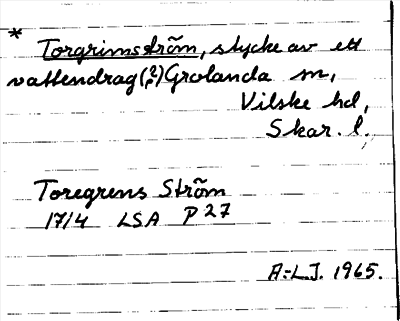 *
Torgrimsström, stycke av ett
vattendrag(?) Grolanda sn,
Vilske hd,
Skar. l.
Toregrens Ström
1714 LSA P 27
A-L.J. 1965.